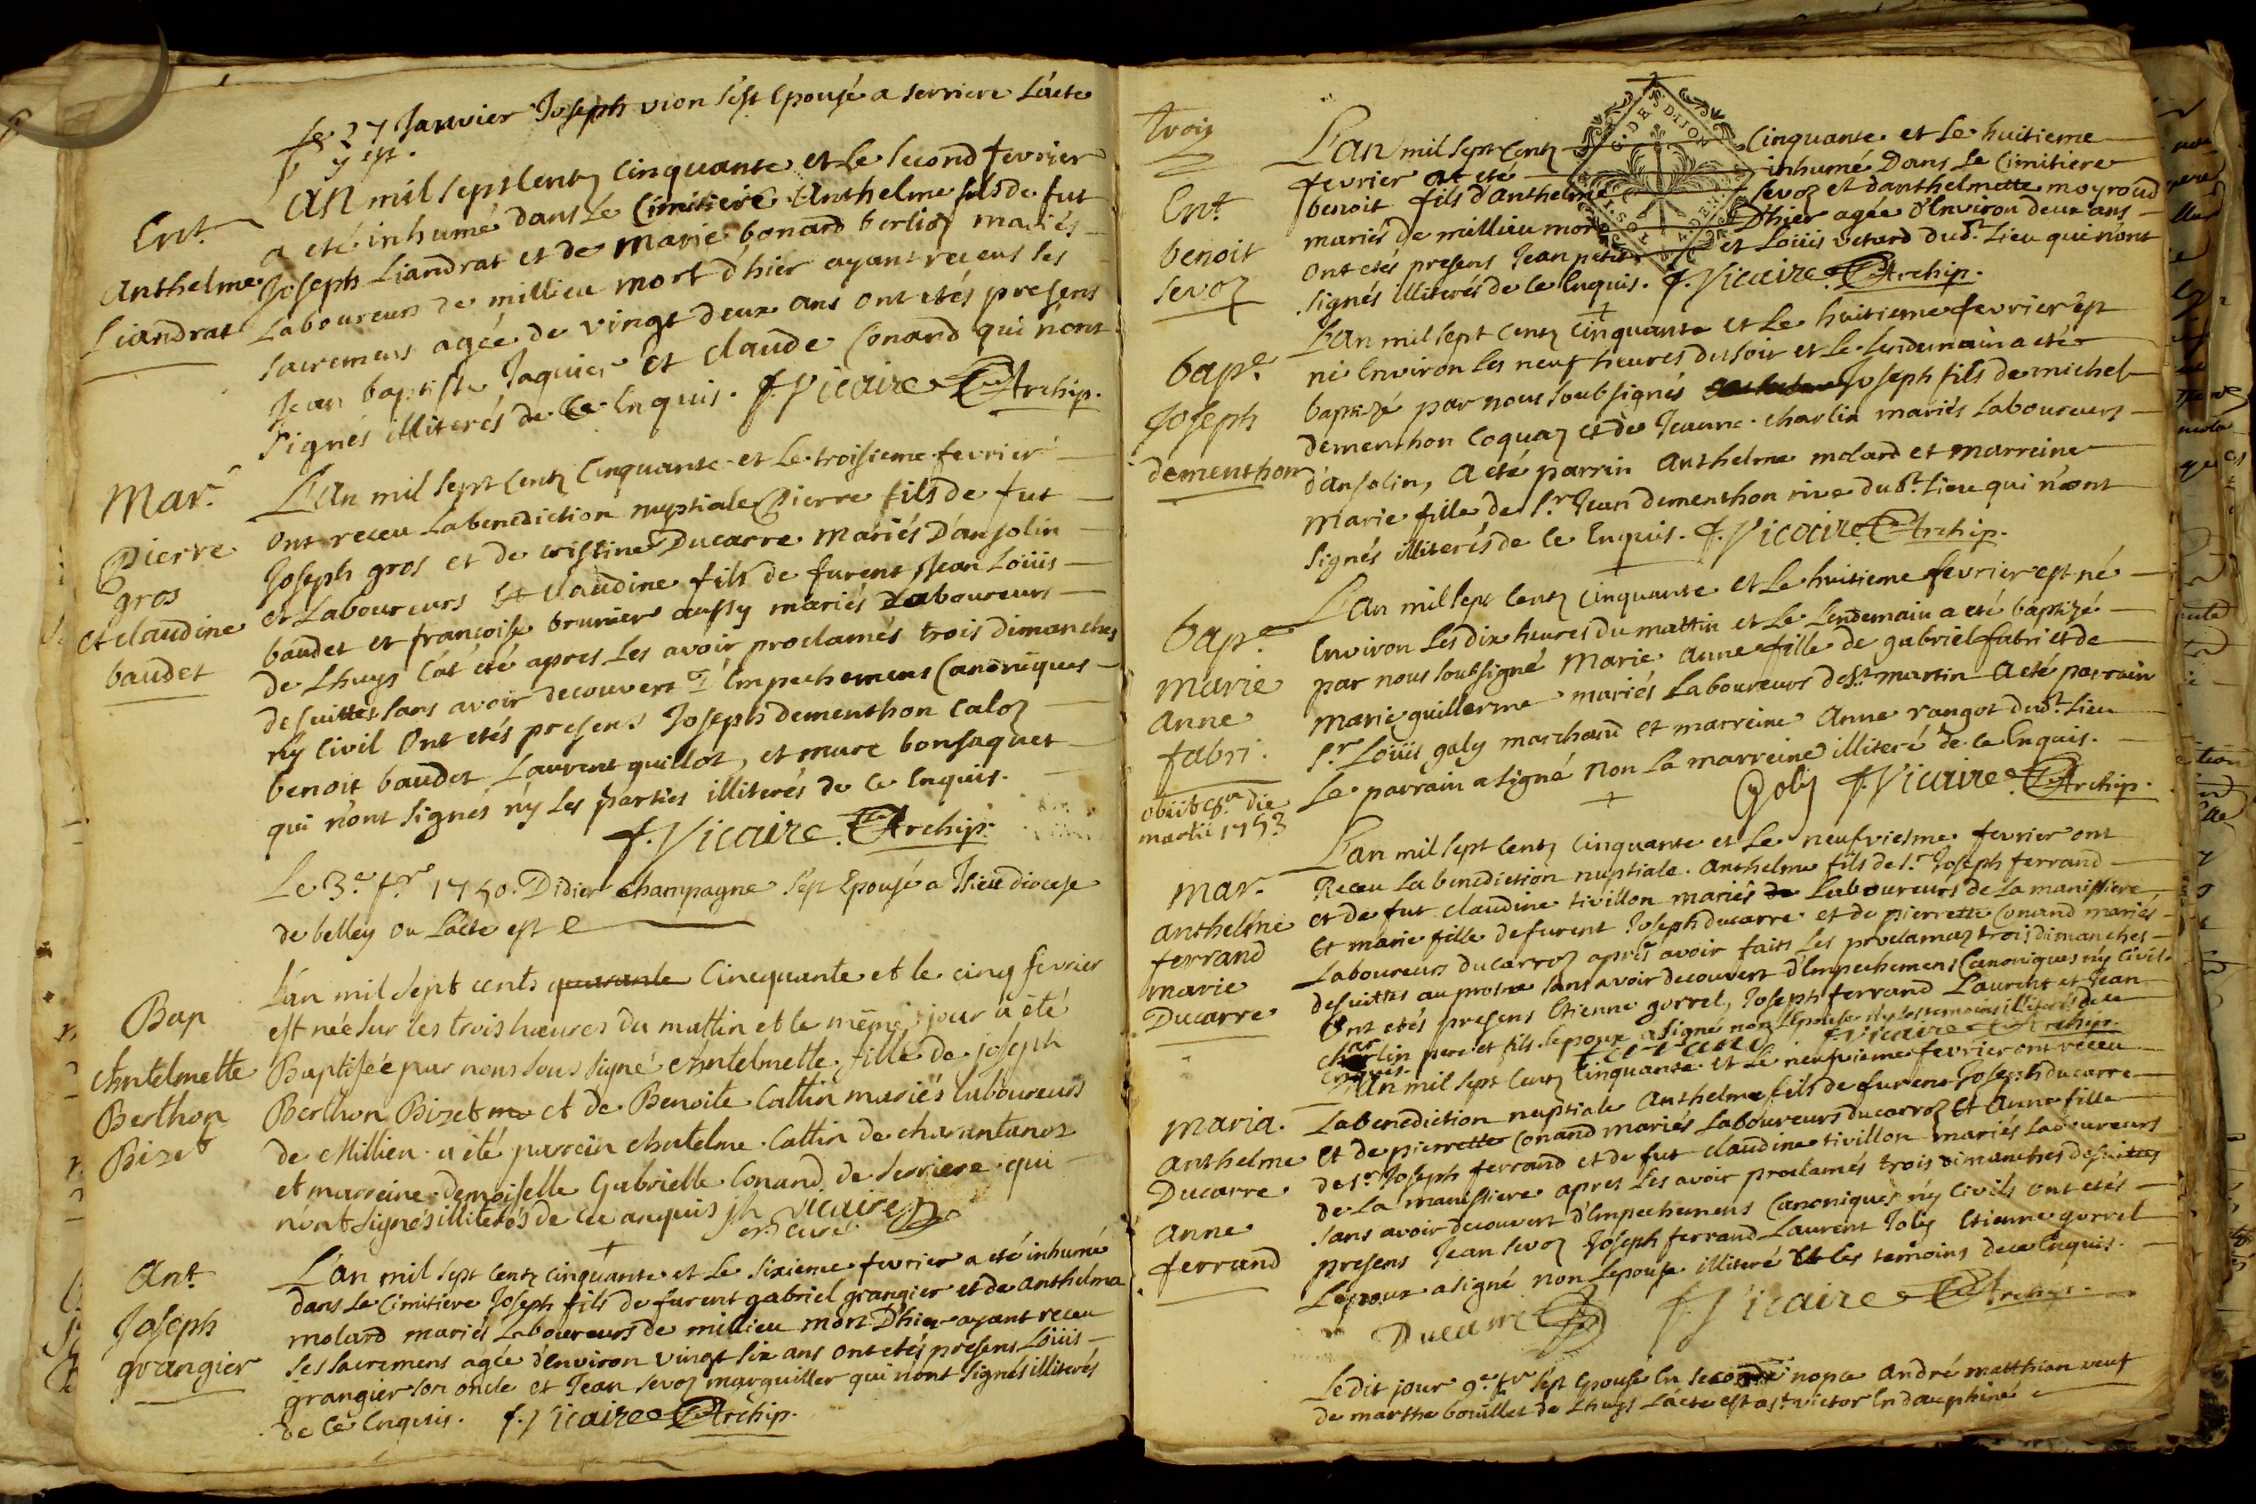 Le 27 Janvier Joseph vion s'est Epousé a serriere L'acte
y est.
Ent.
Anthelme
Liandrat
L'an mil sept Centz Cinquante et le second fevrier
a eté inhumé dans Le Cimitiere Anthelme fils de fut
Joseph Liandrat et de Marie bonard berlioz mariés
Laboureurs de millieu mort d'hier ayant receus ses
sacremens agée de vingt deux ans ont etés presens
Jean baptiste Jaquier et claude Conard qui n'ont
signés illiterés de ce Enquis. f. Vicaire Archip.
Mar.
Pierre
gros
et claudine
baudet
L'an mil sept Centz Cinquante et Le troisieme fevrier
ont receu La benediction nuptiale Pierre fils de fut
Joseph gros et de cristine Ducarre mariés D'ansolin
et Laboureurs Et claudine fille de furent Jean Loüis
baudet et françoise brunier aussy mariés Laboureurs
de Lhuys C'at été apres Les avoir proclamés trois dimanches
de suittes sans avoir decouvert d'Empechemens Canoniques
n'y Civil Ont etés presens Joseph dementhon caloz
benoit baudet Laurent guilloz, et marc bonsaquet
qui n'ont signés n'y Les parties illiterés de ce Enquis.
f. Vicaire Archip.
Le 3.e f.r 1750. Didier champagne s'est Epousé a Isieu diocese
de belley ou L'acte est
Bap
Antelmette
Berthon
Bizet
L'an mil sept cents quarante Cincquante et le cinq fevrier
est née sur les trois hœures du mattin et le même jour a été
Baptisée par nous sous signé Antelmette fille de joseph
Berthon Bizet et de Benoite Cattin mariés laboureurs
de Millieu a été parrein Antelme Cattin de charantanoz
et marreine demoiselle Gabrielle Conand de Serriere qui
n'ont signés illiterés de ce anquis jh vicaire
en cure
Ant.
Joseph
grangier
L'an mil sept Centz Cinquante et Le sixieme fevrier a eté inhumé
dans Le Cimitiere Joseph fils de furent gabriel grangier et de anthelma
molard mariés Laboureurs de millieu mort D'hier ayant receu
ses sacremens agée d'environ vingt six ans ont etés presens Loüis
grangier son oncle et Jean sevoz marguiller qui n'ont signés illiterés
de ce Enquis. f. Vicaire Archip.
trois
G. DE DIJON
Ent.
benoit
sevoz
L'an mil sept Centz Cinquante et Le huitieme
fevrier at eté inhumé Dans Le Cimitiere
benoit fils d'Anthelme sevoz et d'anthelmette moyroud
mariés de millieu mort D'hier agée d'Environ deux ans
Ont etés presens Jean petit et Loüis vetard dud.t Lieu qui n'ont
signés illiterés de ce Enquis. f. Vicaire Archip.
bap.e
Joseph
dementhon
L'an mil sept Centz Cinquante et Le huitieme fevrier est
né Environ Les neuf heures du soir et Le Lendemain a eté
baptizé par nous soubsignés Joseph fils de michel
dementhon Coquaz et de Jeanne charlin mariés Laboureurs
d'ansolin, a eté parrin Anthelme molard et marreine
Marie fille de s.r Jean dementhon rive dud.t Lieu qui n'ont
signés illiterés de ce Enquis. f. Vicaire Archip.
bap.e
marie
anne
fabri.
obiit die
martii 1753
L'an mil sept Centz Cinquante et Le huitieme fevrier est né
Environ Les dix heures du mattin et Le Lendemain a eté baptizé
par nous soubsigné Marie Anne fille de gabriel fabri et de
Marie guillerme mariés Laboureurs de S.t martin a eté parrain
s.r Loüis goly marchand et marreine Anne rangot dud.t Lieu
Le parrain a signé non La marreine illiteré de ce Enquis.
Goly f. Vicaire Archip.
Mar.
Anthelme
ferrand
marie
Ducarre
L'an mil sept Centz Cinquante et Le neufviesme fevrier ont
Receu La benediction nuptiale Anthelme fils de s.r Joseph ferrand
et de fut claudine tivillon mariés Laboureurs de La manissiere
Et marie fille de furent Joseph ducarre et de pierrette Conand mariés
Laboureurs du Carroz après avoir faits Les proclamaz trois dimanches
de suittes au prosne sans avoir decouvert d'Empechemens Canoniques n'y Civil.
Ont etés presens Etienne gorrel, Joseph ferrand Laurent et Jean
charlin pere et fils. l'epoux a signé non L'epouse n'y Les temoins illiterés de ce
Enquis. ferrand f. Vicaire Archip.
maria.
Anthelme
Ducarre
Anne
ferrand
L'an mil sept Centz Cinquante et Le neufvieme fevrier ont receu
La benediction nuptiale Anthelme fils de furent Joseph ducarre
Et de pierrette Conand mariés Laboureurs du carroz Et Anne fille
de s.r Joseph ferrand et de fut claudine tivillon mariés Laboureurs
de La manissiere apres Les avoir proclamés trois dimanches de suittes
sans avoir decouvert d'Empechemens Canoniques n'y Civils ont etés
presens Jean sevoz Joseph ferrand Laurent Joly Etienne gorrel
L'epoux a signé non L'epouse illiteré Et Les temoins de ce Enquis.
Ducarre f. Vicaire Archip.
Le dit jour 9.e f.r s'est Epousé En seconde nopce André matthian veuf
de marthe boüillet de Lhuys L'acte est a s.t victor En dauphiné